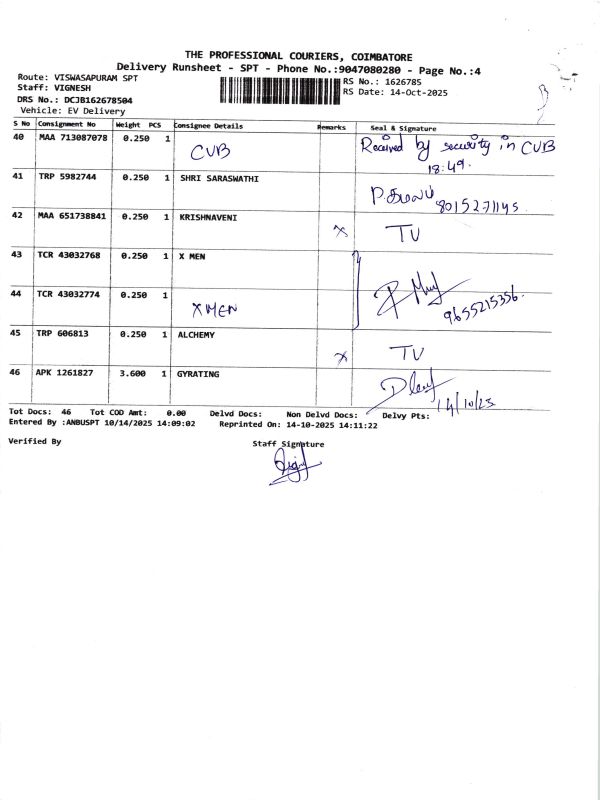 THE PROFESSIONAL COURIERS, COIMBATORE
Delivery Runsheet - SPT - Phone No.:9047080280 - Page No.:4
Route: VISWASAPURAM SPT
Staff: VIGNESH
DRS No.: DCJB162678504
Vehicle: EV Delivery
RS No.: 1626785
RS Date: 14-Oct-2025
S No Consignment No Weight PCS Consignee Details Remarks Seal & Signature
40 MAA 713087078 0.250 1 CUB Received by security in CUB
18:49.
41 TRP 5982744 0.250 1 SHRI SARASWATHI
42 MAA 651738841 0.250 1 KRISHNAVENI x TV
43 TCR 43032768 0.250 1 X MEN
44 TCR 43032774 0.250 1 XMEN 9655215356.
45 TRP 606813 0.250 1 ALCHEMY x TV
46 APK 1261827 3.600 1 GYRATING
14/10/25
Tot Docs: 46 Tot COD Amt: 0.00 Delvd Docs: Non Delvd Docs: Delvy Pts:
Entered By :ANBUSPT 10/14/2025 14:09:02 Reprinted On: 14-10-2025 14:11:22
Verified By Staff Signature